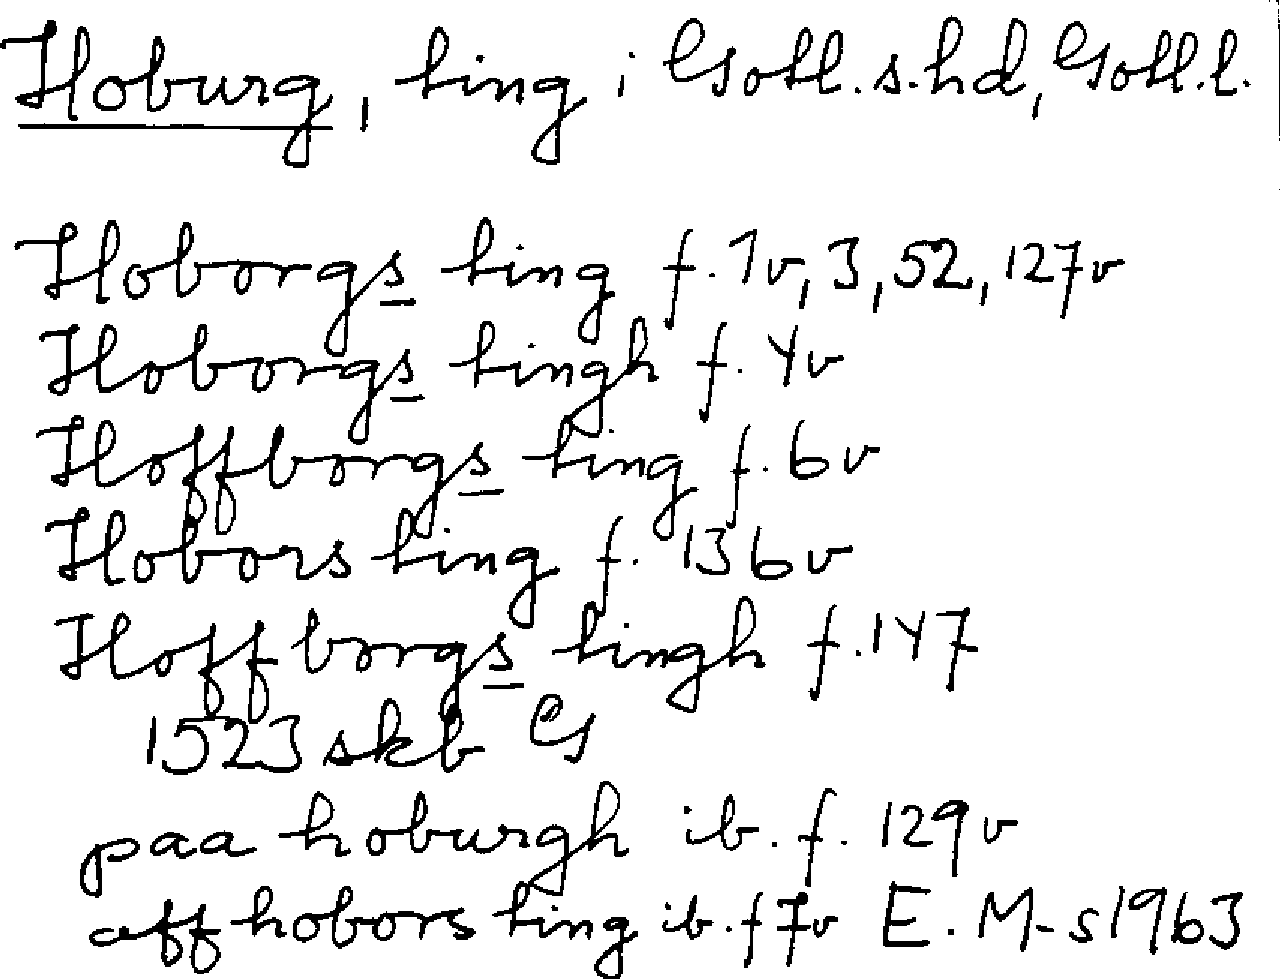 Hoburg, ting i Gotl. s. hd, Gotl. l.
Hoborgs ting f. 1v, 3, 52, 127v
Hoborgs tingh f. 4v
Hoffborgs ting f. 6v
Hobors ting f. 136v
Hoffborgs tingh f. 147
1523 skb G
paa hoburgh ib. f. 129v
aff hobors ting ib. f 7v E. M-s 1963